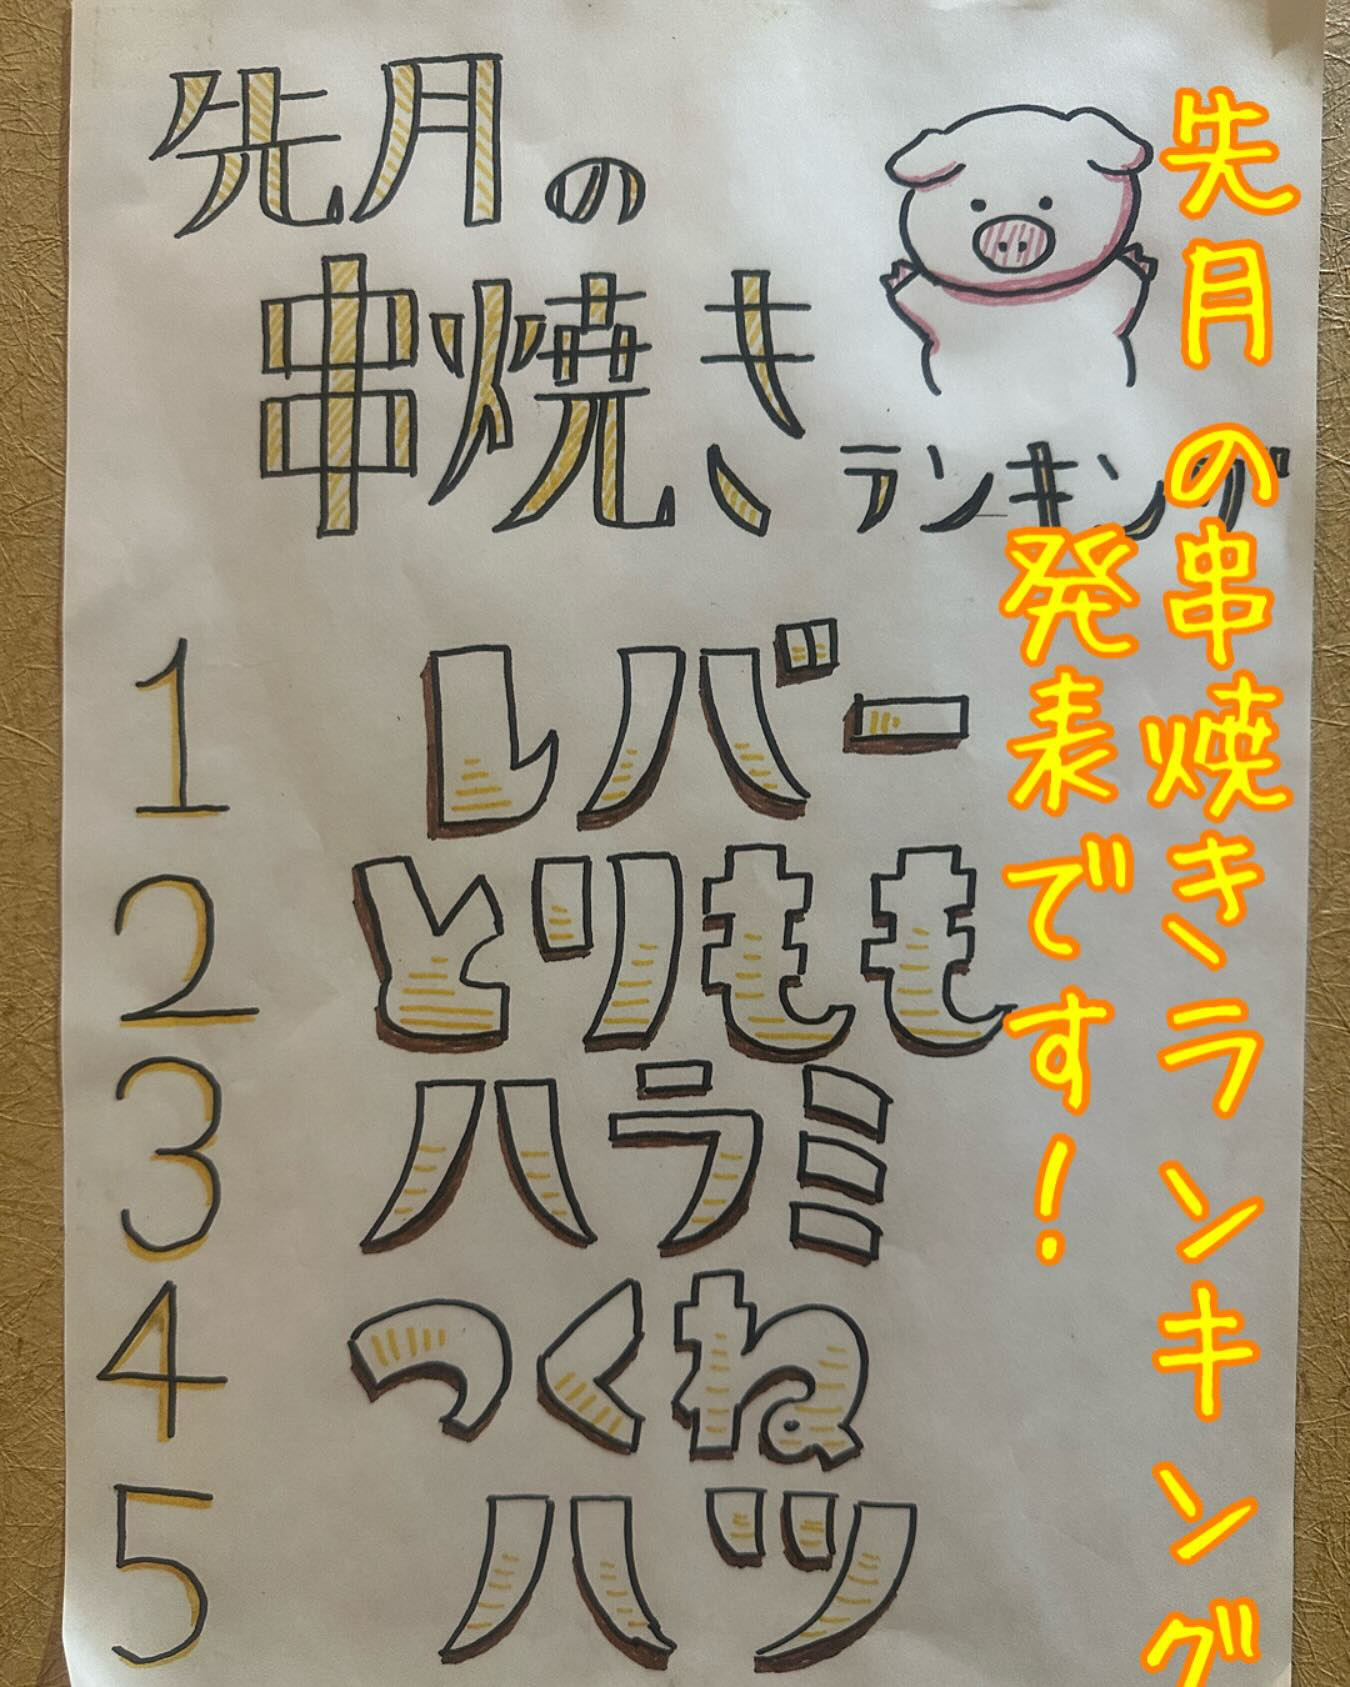 先月の
串焼き
ランキング
1 レバー
2 とりもも
3 ハラミ
4 つくね
5 ハツ
先月の串焼きランキング
発表です!